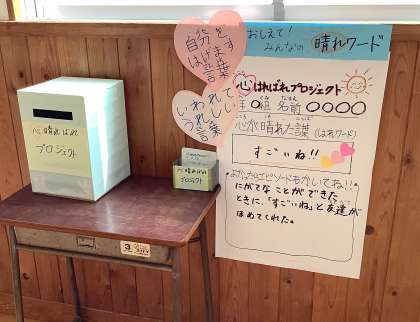 おしえて!
みんなの 晴れワード
自分を
はげます
言葉
いわれて
うれしい
言葉
心はればれプロジェクト
年 組 名前 ○○○○
心が晴れた言葉(はれワード)
すごいね!!
よかったらエピソードもかいてね!!
にがてなことができた
ときに、「すごいね」と友達が
ほめてくれた。
心晴ればれ
プロジェクト
心晴ればれ
プロジェクト